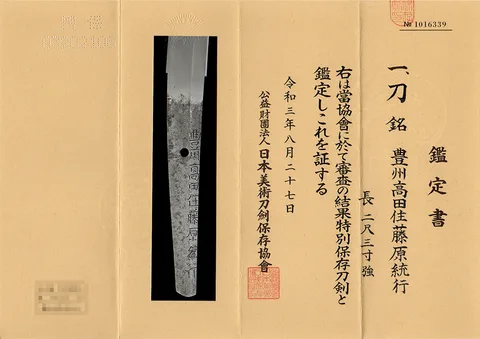 № 1016339
鑑定書
一、刀 銘 豊州高田住藤原統行
長 二尺三寸強
右は當協會に於て審査の結果特別保存刀剣と
鑑定しこれを証する
令和三年八月二十七日
公益財團法人 日本美術刀剣保存協會
豊州高田住藤原統行